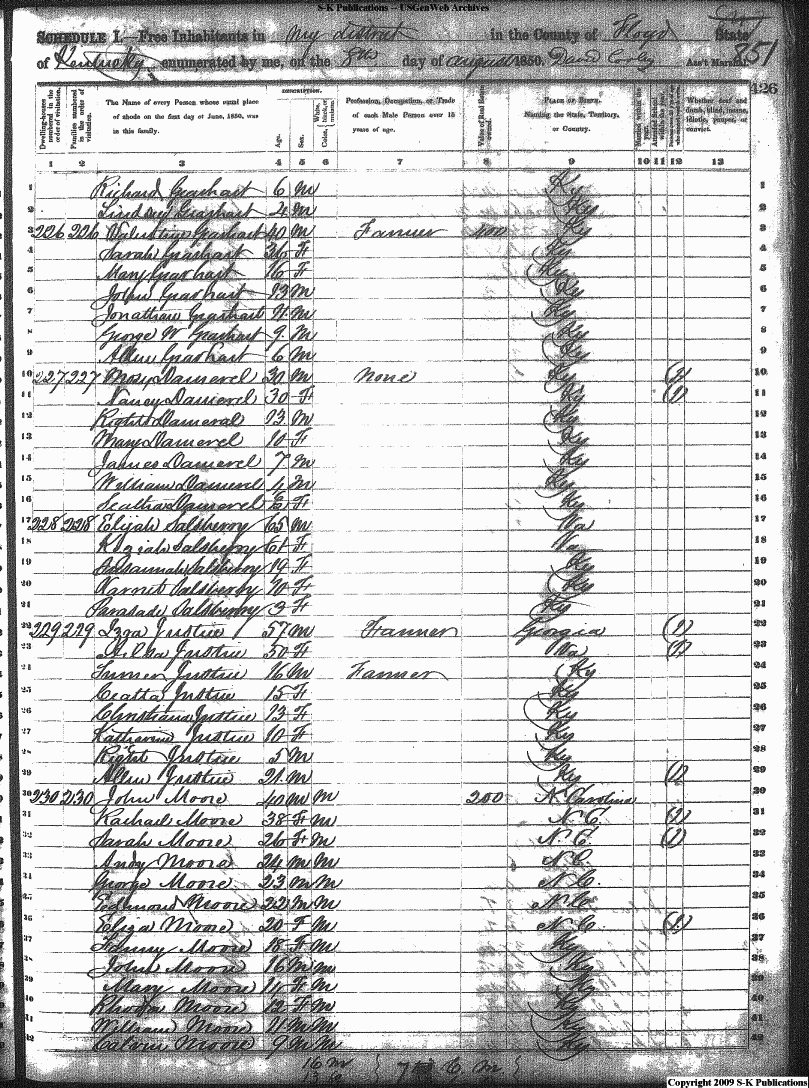 S-K Publications – USGenWeb Archives
SCHEDULE I.—Free Inhabitants in My district in the County of Floyd State
of Kentucky enumerated by me, on the 8th day of August 1850. David Ass't Marshal. 851
426
Dwelling-houses numbered in the order of visitation. Families numbered in the order of visitation. The Name of every Person whose usual place of abode on the first day of June, 1850, was in this family. DESCRIPTION. Age. Sex. Color, White, black, or mulatto. Profession, Occupation, or Trade of each Male Person over 15 years of age. Value of Real Estate owned. PLACE OF BIRTH. Naming the State, Territory, or Country. Married within the year. Attended School within the year. Whether deaf and dumb, blind, insane, idiotic, pauper, or convict.
1 2 3 4 5 6 7 8 9 10 11 12 13
1 Richard Gearhart 6 M Ky 1
2 Lindsey Gearhart 4 M Ky 2
3 226 226 Valentine Gearhart 40 M Farmer 400 Ky 3
4 Sarah Gearhart 36 F Ky 4
5 Mary Gearhart 16 F Ky 5
6 John Gearhart 13 M Ky 6
7 Jonathan Gearhart 11 M Ky 7
8 George W Gearhart 9 M Ky 8
9 Allen Gearhart 6 M Ky 9
10 227 227 Mosy Damerel 30 M None Ky (1) 10
11 Nancy Damerel 30 F Ky (1) 11
12 Right Dameral 13 M Ky 12
13 Mary Damerel 10 F Ky 13
14 James Damerel 7 M Ky 14
15 William Damerel 4 M Ky 15
16 Damerel F Ky 16
17 228 228 Elijah Salsberry 65 M Va 17
18 Keziah Salsberry 61 F Va 18
19 Susannah Salsberry 19 F Ky 19
20 Harriet Salsberry 10 F Ky 20
21 Salsberry 3 F Ky 21
22 229 229 Ezra Justice 57 M Farmer Georgia (1) 22
23 Justice 50 F Va (1) 23
24 Justice 16 M Farmer Ky 24
25 Justice 15 F Ky 25
26 Christiana Justice 13 F Ky 26
27 Katharine Justice 10 F Ky 27
28 Right Justice 5 M Ky 28
29 Allen Justice 21 M Ky (1) 29
30 230 230 John Moore 40 M M 200 N Carolina 30
31 Rachael Moore 38 F M N C. (1) 31
32 Sarah Moore 26 F M N. C. (1) 32
33 Andy Moore 24 M M N.C. 33
34 George Moore 23 M M N C. 34
35 Edmond Moore 22 M M N. C. 35
36 Eliza Moore 20 F M N. C. (1) 36
37 Fanny Moore 18 F M Ky 37
38 John Moore 16 M M Ky 38
39 Mary Moore 14 F M Ky 39
40 Rhoda Moore 12 F M Ky 40
41 William Moore 11 M M Ky 41
42 Calvin Moore 9 M M Ky 42
16 M
Copyright 2009 S-K Publications